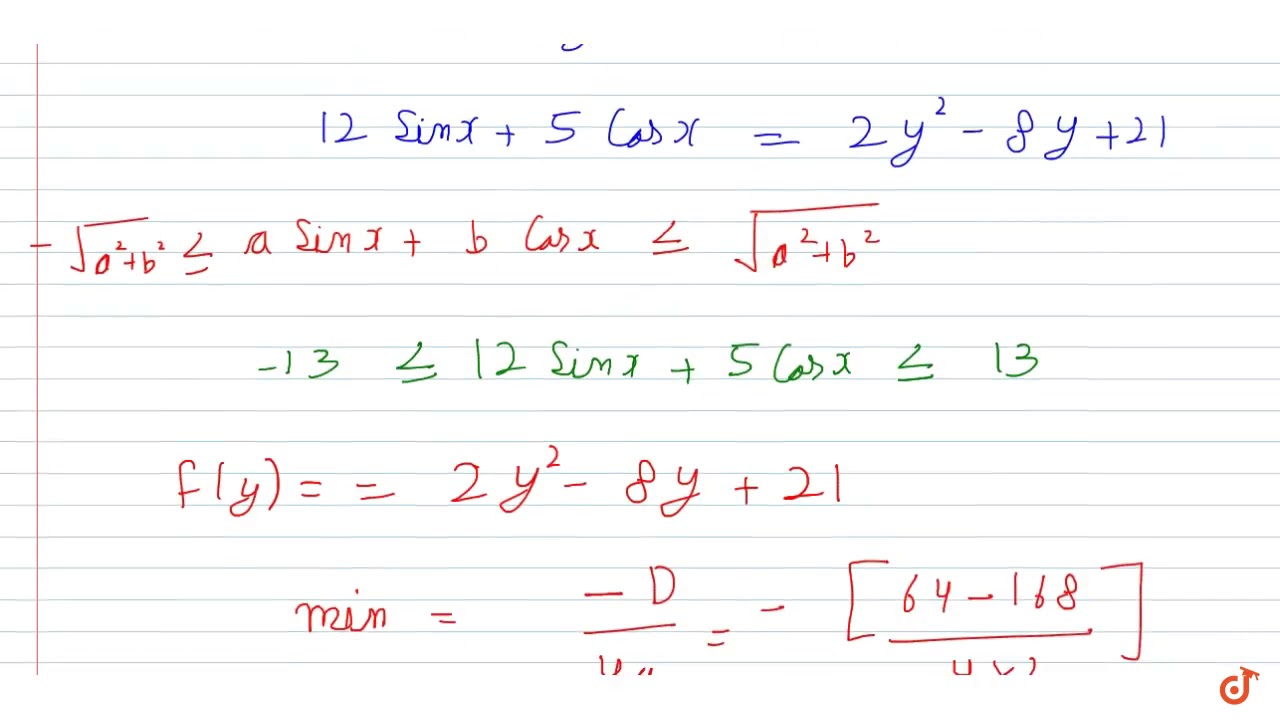 12 Sinx + 5 Cosx = 2y² - 8y + 21
-√a²+b² ≤ a Sinx + b Cosx ≤ √a²+b²
-13 ≤ 12 Sinx + 5 Cosx ≤ 13
f(y) = = 2y² - 8y + 21
min = -D/4a = - [64-168/4×2]